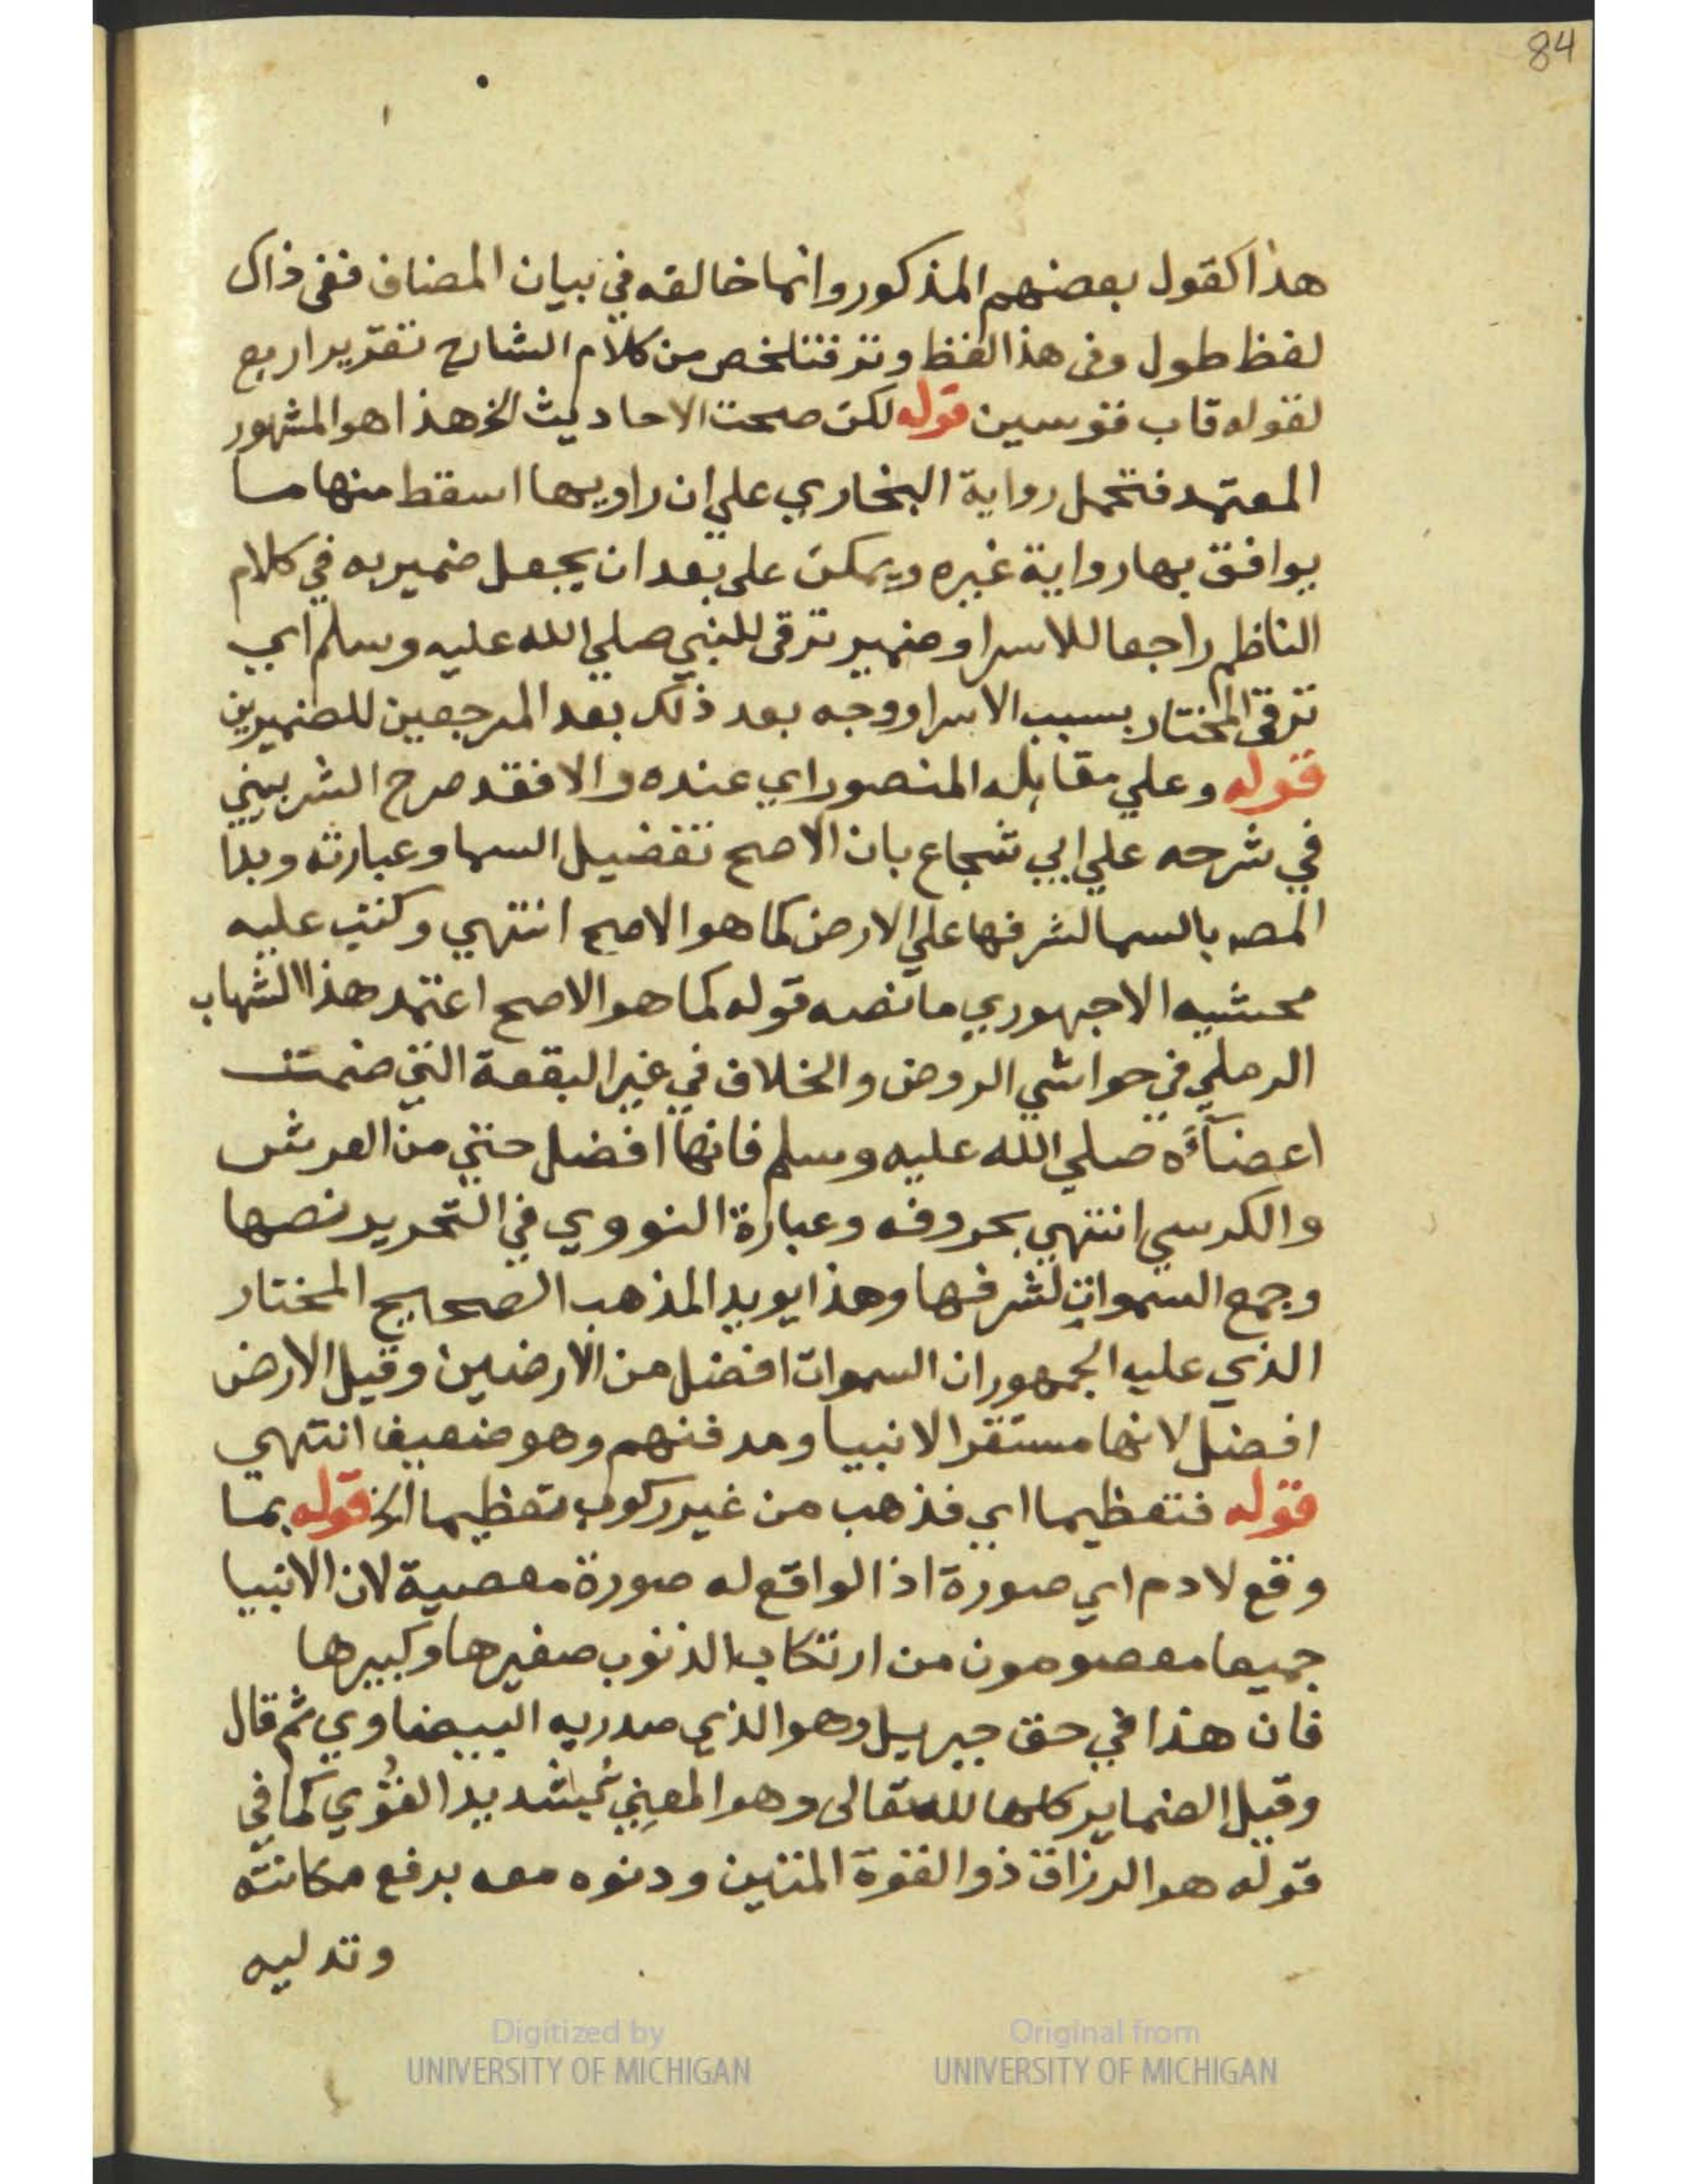 84
هذا كقول بعضهم المذكور وانما خالفه في بيان المضاف ففى ذاك
لفظ طول وفى هذا لفظ وتر فتلخص من كلام الشارح تقدير اربع
لقوله قاب قوسين قوله لكن صحت الاحاديث الخ هذا هو المشهور
المعتمد فتحمل رواية البخاري علي ان راويها اسقط منها ما
يوافق بها رواية غيره ويمكن على بعد ان يجعل ضمير به في كلام
الناظم راجعا للاسرا وضمير ترقى للنبي صلي الله عليه وسلم اي
ترقى المختار بسبب الاسرا ووجه بعد ذلك بعد المرجعين للضميرين
قوله وعلي مقابله المنصور اي عنده والا فقد صرح الشربيني
في شرحه علي ابي شجاع بان الاصح تفضيل السما وعبارته وبدا
المصه بالسما لشرفها علي الارض كما هو الاصح انتهي وكتب عليه
محشيه الاجهوري ما نصه قوله كما هو الاصح اعتمد هذا الشهاب
الرملي في حواشي الروض والخلاف في غير البقعة التي ضمت
اعضآءه صلي الله عليه وسلم فانها افضل حتي من العرش
والكرسي انتهي بحروفه وعبارة النووي في التحرير نصها
وجمع السموات لشرفها وهذا يويد المذهب الصحيح المختار
الذي عليه الجمهور ان السموات افضل من الارضين وقيل الارض
افضل لانها مستقر الانبيا ومدفنهم وهو ضعيف انتهي
قوله فتعظيما اي فذهب من غير ركوب تعظيما الخ قوله بما
وقع لادم اي صورة اذ الواقع له صورة معصية لان الانبيا
جميعا معصومون من ارتكاب الذنوب صغيرها وكبيرها
فان هذا في حق جبريل وهو الذي صدر به البيضاوي ثم قال
وقيل الضماير كلها لله تعالى وهو المعني بشديد القوي كما في
قوله هو الرزاق ذو القوة المتين ودنوه معه برفع مكانته
وتدليه
Digitized by
UNIVERSITY OF MICHIGAN
Original from
UNIVERSITY OF MICHIGAN